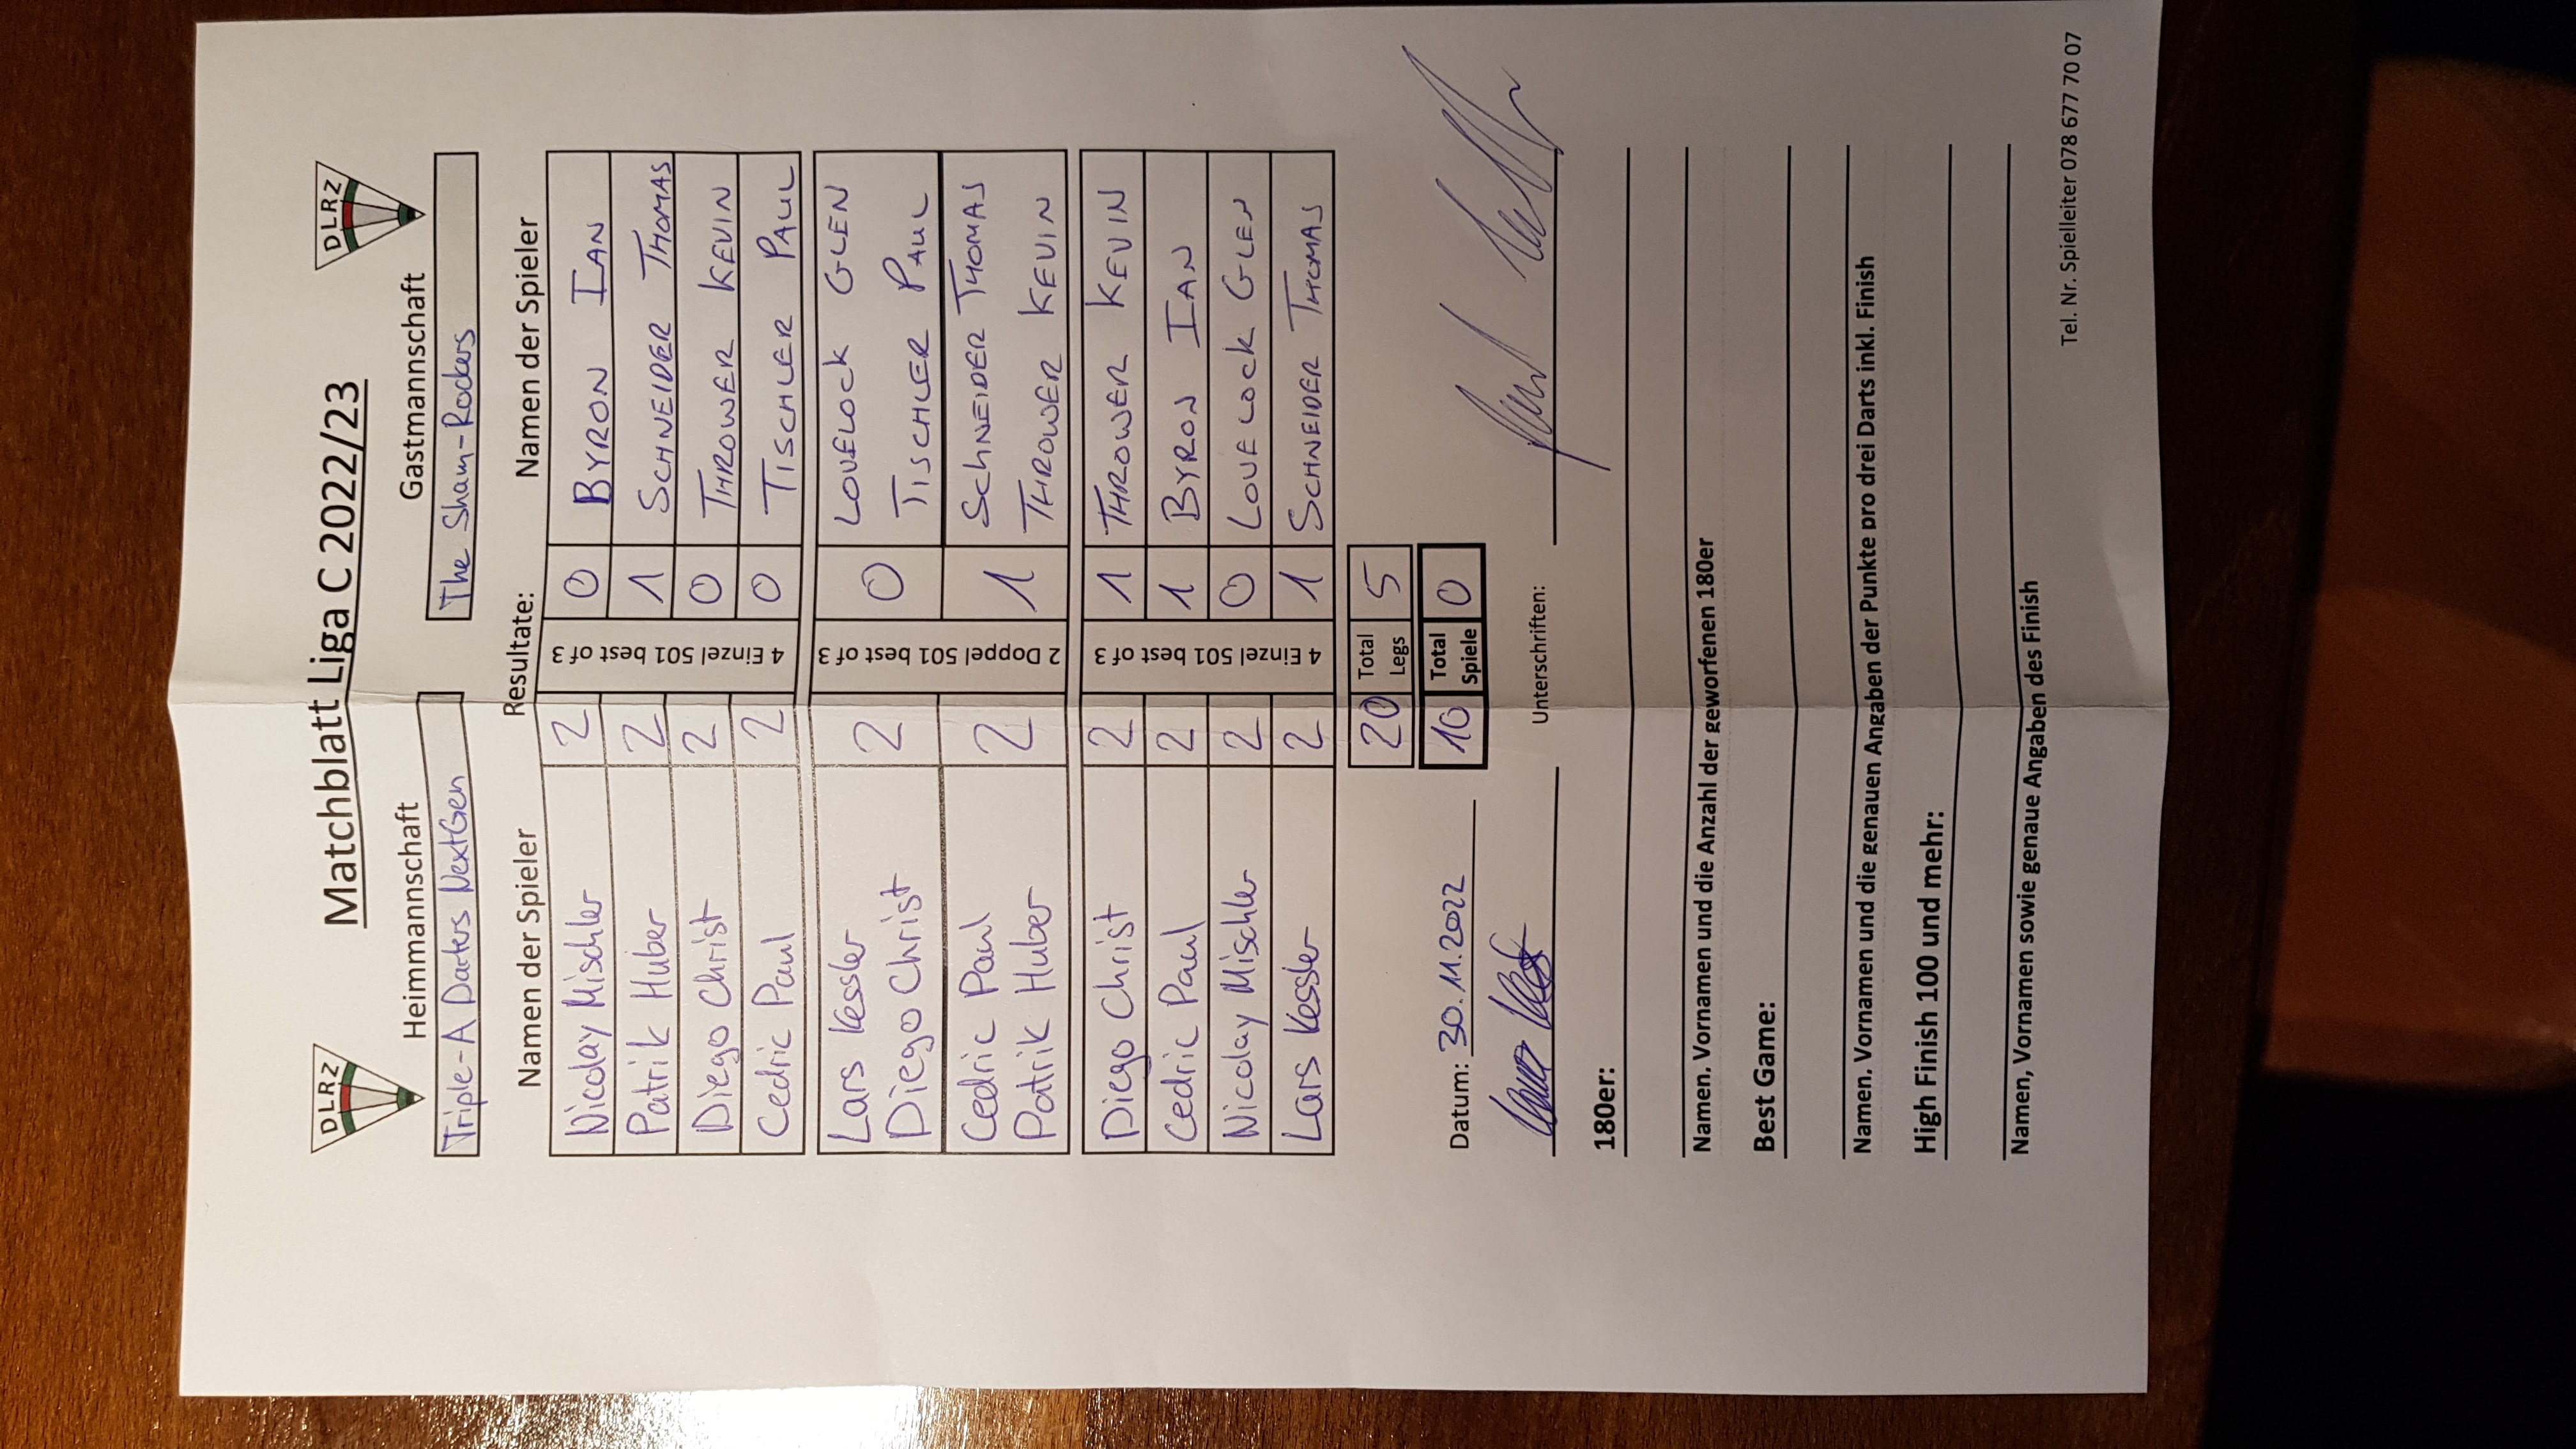 DLRZ
Matchblatt Liga C 2022/23
DLRZ
Heimmannschaft
Gastmannschaft
Triple-A Darters NextGen
The Sham-Rockers
Namen der Spieler
Resultate:
Namen der Spieler
Nicolay Mischler 2 0 BYRON IAN
Patrik Huber 2 1 SCHNEIDER THOMAS
Diego Christ 2 0 THROWER KEVIN
Cedric Paul 2 0 TISCHLER PAUL
4 Einzel 501 best of 3
Lars Kessler 2 0 LOVELOCK GLEN
Diego Christ TISCHLER PAUL
Cedric Paul 2 1 SCHNEIDER THOMAS
Patrik Huber THROWER KEVIN
2 Doppel 501 best of 3
Diego Christ 2 1 THROWER KEVIN
Cedric Paul 2 1 BYRON IAN
Nicolay Mischler 2 0 LOVELOCK GLEN
Lars Kessler 2 1 SCHNEIDER THOMAS
4 Einzel 501 best of 3
20 Total Legs 5
10 Total Spiele 0
Datum: 30.11.2022
Unterschriften:
180er:
Namen. Vornamen und die Anzahl der geworfenen 180er
Best Game:
Namen. Vornamen und die genauen Angaben der Punkte pro drei Darts inkl. Finish
High Finish 100 und mehr:
Namen, Vornamen sowie genaue Angaben des Finish
Tel. Nr. Spielleiter 078 677 70 07